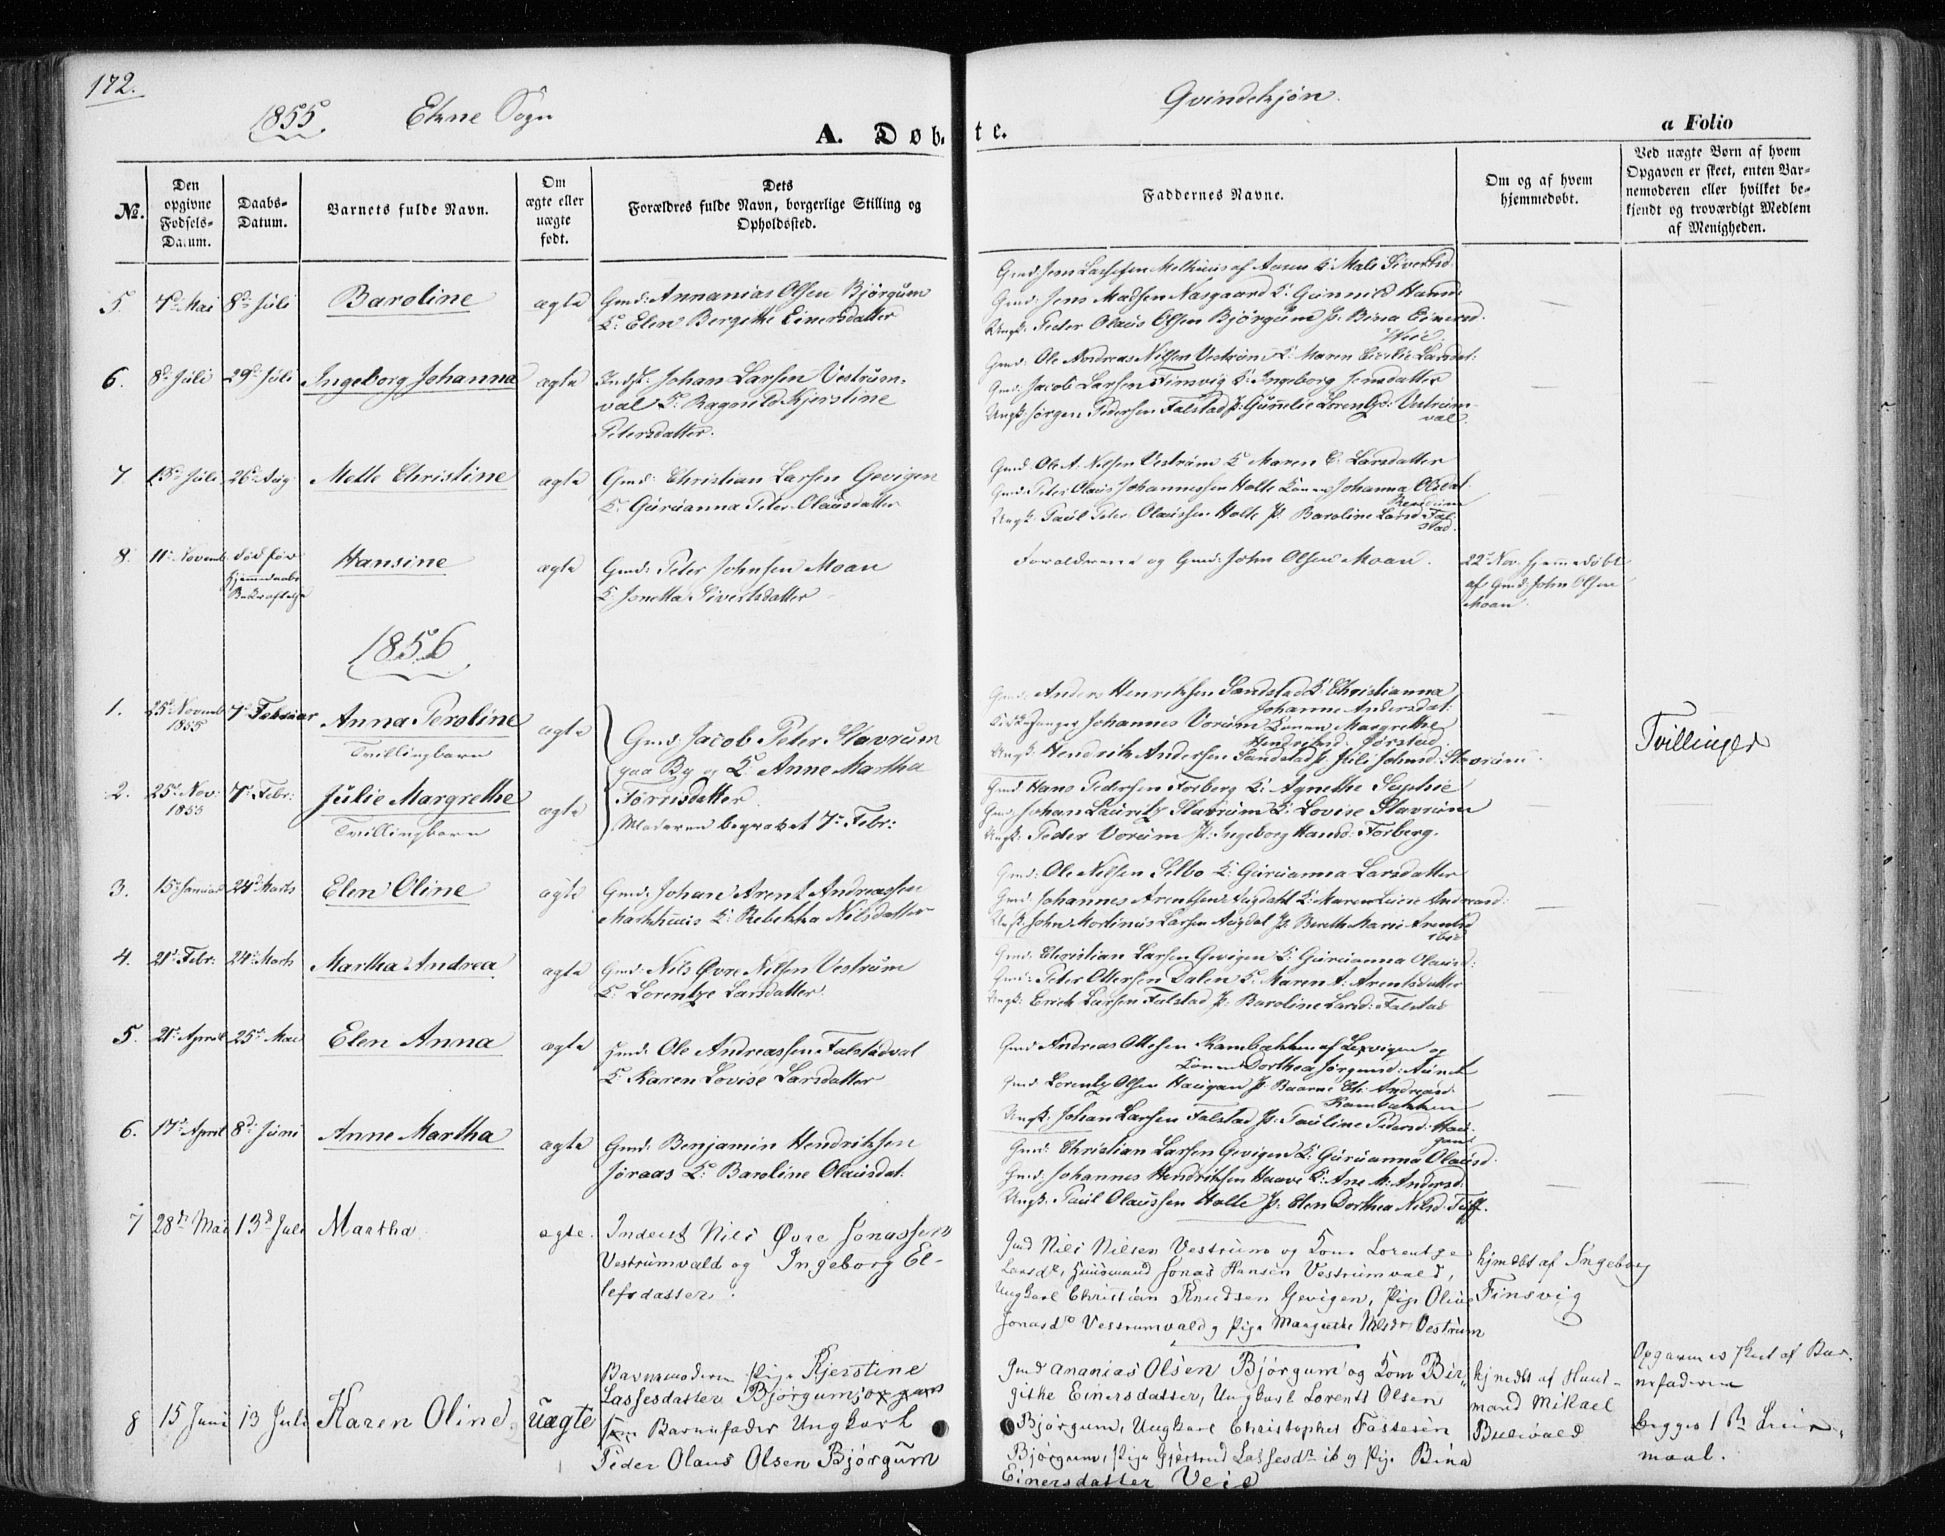 172.
1855 Ekne Sogn
Qvindekjøn.
A. Døbte.
a Folio
No.
Den opgivne Fødsels-Datum.
Daabs-Datum.
Barnets fulde Navn.
Om ægte eller uægte født.
Dets Forældres fulde Navn, borgerlige Stilling og Opholdssted.
Faddernes Navne.
Om og af hvem hjemmedøbt.
Ved uægte Børn af hvem Opgaven er skeet, enten Barnemoderen eller hvilket bekjendt og troværdigt Medlem af Menigheden.
5. 7de Mai 8de Juli Baroline ægte Gmd: Annanias Olsen Bjørgum
K: Elen Bergethe Einersdatter
Gmd: Jens Madsen Nasgaard K: Gunnild Hansd:
Ungk: Peder Olaus Olsen Bjørgum P: Bina Einersd.
Veie
6. 8de Juli 29de Juli Ingeborg Johanna ægte Indst: Johan Larsen Vestrum-
val K: Ragnild Kjerstine
Petersdatter.
Gmd: Ole Andreas Nilsen Vestrum K: Maren Cecilie Larsdat:
Gmd: Jacob Larsen Finsvig K: Ingeborg Jensdatter
Ungk: Jørgen Pedersen Falstad P: Gunnelie Lorentsd: Vestrum-
val.
7 15de Juli 26de Aug Mette Christine ægte Gmd: Christian Larsen Gevigen
K: Guruanna Peter Olausdatter
Gmd: Ole A. Nilsen Vestrum K: Maren C. Larsdatter
Gmd: Peter Olaus Johannessen Holte Konen Johanna Olsdat.
Ungk: Paul Peter Olaussen Holte P: Baroline Larsd: Fal-
stad.
8. 11te Novemb. død før
hjemmedaabs
Bekræftelse
Hansine ægte Gmd: Peter Johnsen Moan
K: Jonetta Sivertsdatter
Forældrene og Gmd: John Olsen Moan.
22de Nov. hjemmedøbt
af Gmd: John Olsen
Moan.
1856
1. 25de Novemb
1855
7de Februar Anna Peroline
Tvillingbarn
ægte Gmd: Jacob Peter Stavrum
paa By og K: Anne Martha
Torrisdatter
Moderen begravet 7de Febr:
Gmd: Anders Henriksen Sandstad K: Christianna
Johanne Andersdat:
Kirkesanger Johannes Vorum Konen Margrethe
Hendriksd: Jørstad
Ungk: Hendrik Andersen Sandstad P: Juli Johnsd: Stavrum.
Tvillinger
2. 25de Nov:
1855
7de Febr: Julie Margrethe
Tvillingbarn
ægte
Gmd Hans Pedersen Forberg K: Agnethe Sophie
Gmd: Johan Lauritz Stavrum K: Lovise Stavrum
Ungk: Peder Vorum P: Ingeborg Hansd: Forberg.
3. 15de Januar 24de Marts Elen Oline ægte Gmd: Johan Arent Andreassen
Markhuus K: Rebekka Nilsdatter
Gmd: Ole Nilsen Selbo K: Guruanna Larsdatter
Gmd: Johannes Arentsen Augdahl K: Maren Andreasd:
Ungk: John Martinus Larsen Augdal P: Bereth Marie Arentsd
ibid
4. 21de Febr: 24de Marts Martha Andrea ægte Gmd: Nils Øvre Nilsen Vestrum
K: Lorentze Larsdatter.
Gmd: Christian Larsen Gevigen K: Guruanna Olausd:
Gmd: Peter Ottersen Dalen K: Maren A. Arentsdatter
Ungk: Erich Larsen Falstad P: Baroline Larsd: Falstad
5. 21de April 25de Mai Elen Anna ægte Gmd: Ole Andreassen Falstadval
K: Karen Lovise Larsdatter
Gmd Andreas Ottesen Rambakken af Lexvigen og
Konen Dorthea Jørgensd: Aunet
Gmd Lorentz Olsen Haugan P: Andreasd:
Rambakken
Ungk: Johan Larsen Falstad P: Pauline Pedersd: Hau-
gan
6. 17de April 8de Juni Anne Martha ægte Gmd: Benjamin Hendriksen
Joraas K: Baroline Olausdat:
Gmd: Christian Larsen Gevigen K: Guruanna Olausd.
Gmd: Johannes Hendriksen Haave K: Ane M: Andersd:
Ungk: Paul Olaussen Holte P: Elen Dorthea Nilsd: Tuff.
7 28de Mai 13de Juli Martha. ægte. Inderst Nils Øvre Jonassen
Vestrumvald og Ingeborg El-
lefsdatter.
Gmd Nils Nilsen Vestrum og Kone Lorentze
Larsdtr, Huusmand Jonas Hansen Vestrumvald,
Ungkarl Christian Knudsen Gevigen, Pige Oline
Jonasdtr Vestrumvald og Pige Margrethe Nilsdtr Vestrum
hjmdbt af Ingeborg
Finsvig
8 15 Juni 13 Juli Karen Oline uægte Barnemoderen Pige Kjerstine
Lassesdatter Bjørgum,
Barnefader Ungkarl
Peder Olaus Olsen Bjørgum
Gmd Ananias Olsen Bjørgum og Kone Bir-
githe Einersdatter, Ungkarl Lorents Olsen
Bjørgum, Ungkarl Christopher Tostesen
Bjørgum, Pige Gjertrud Lassesdtr ib og Pige Bina
Einersdatter Veie
hjmdbt af Huus-
mand Mikael
Bulivald
Opgaven er skeet af Bar-
nefaderen
Begges 1ste Leier-
maal.